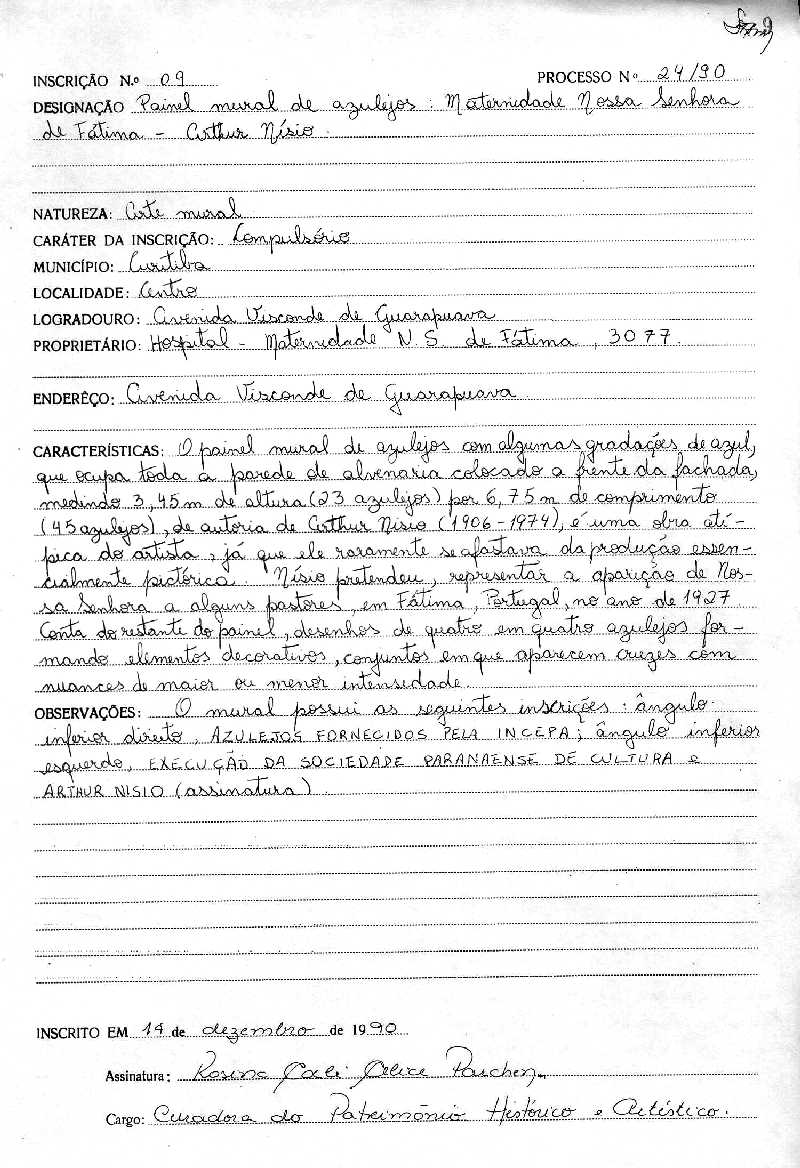 INSCRIÇÃO N.º 09 PROCESSO Nº 24/90
DESIGNAÇÃO Painel mural de azulejos: Maternidade Nossa Senhora
de Fátima - Arthur Nísio.
NATUREZA: Arte mural
CARÁTER DA INSCRIÇÃO: Compulsório
MUNICÍPIO: Curitiba
LOCALIDADE: Centro
LOGRADOURO: Avenida Visconde de Guarapuava
PROPRIETÁRIO: Hospital - Maternidade N S de Fátima, 3077.
ENDERÊÇO: Avenida Visconde de Guarapuava
CARACTERÍSTICAS: O painel mural de azulejos com algumas gradações de azul,
que ocupa toda a parede de alvenaria colocado a frente da fachada,
medindo 3,45m de altura (23 azulejos) por 6,75m de comprimento
(45 azulejos), de autoria de Arthur Nisio (1906-1974), é uma obra atí-
pica do artista, já que ele raramente se afastava da produção essen-
cialmente pictórica. Nísio pretendeu, representar a aparição de Nos-
sa Senhora a alguns pastores, em Fátima, Portugal, no ano de 1927
Conta do restante do painel, desenhos de quatro em quatro azulejos for-
mando elementos decorativos, conjuntos em que aparecem cruzes com
nuances de maior ou menor intensidade.
OBSERVAÇÕES: O mural possui as seguintes inscrições: ângulo
inferior direito, AZULEJOS FORNECIDOS PELA INCEPA; ângulo inferior
esquerdo, EXECUÇÃO DA SOCIEDADE PARANAENSE DE CULTURA e
ARTHUR NISIO (assinatura)
INSCRITO EM 14 de dezembro de 1990
Assinatura: Rosina Parchen
Cargo: Curadora do Patrimônio Histórico e Artístico.